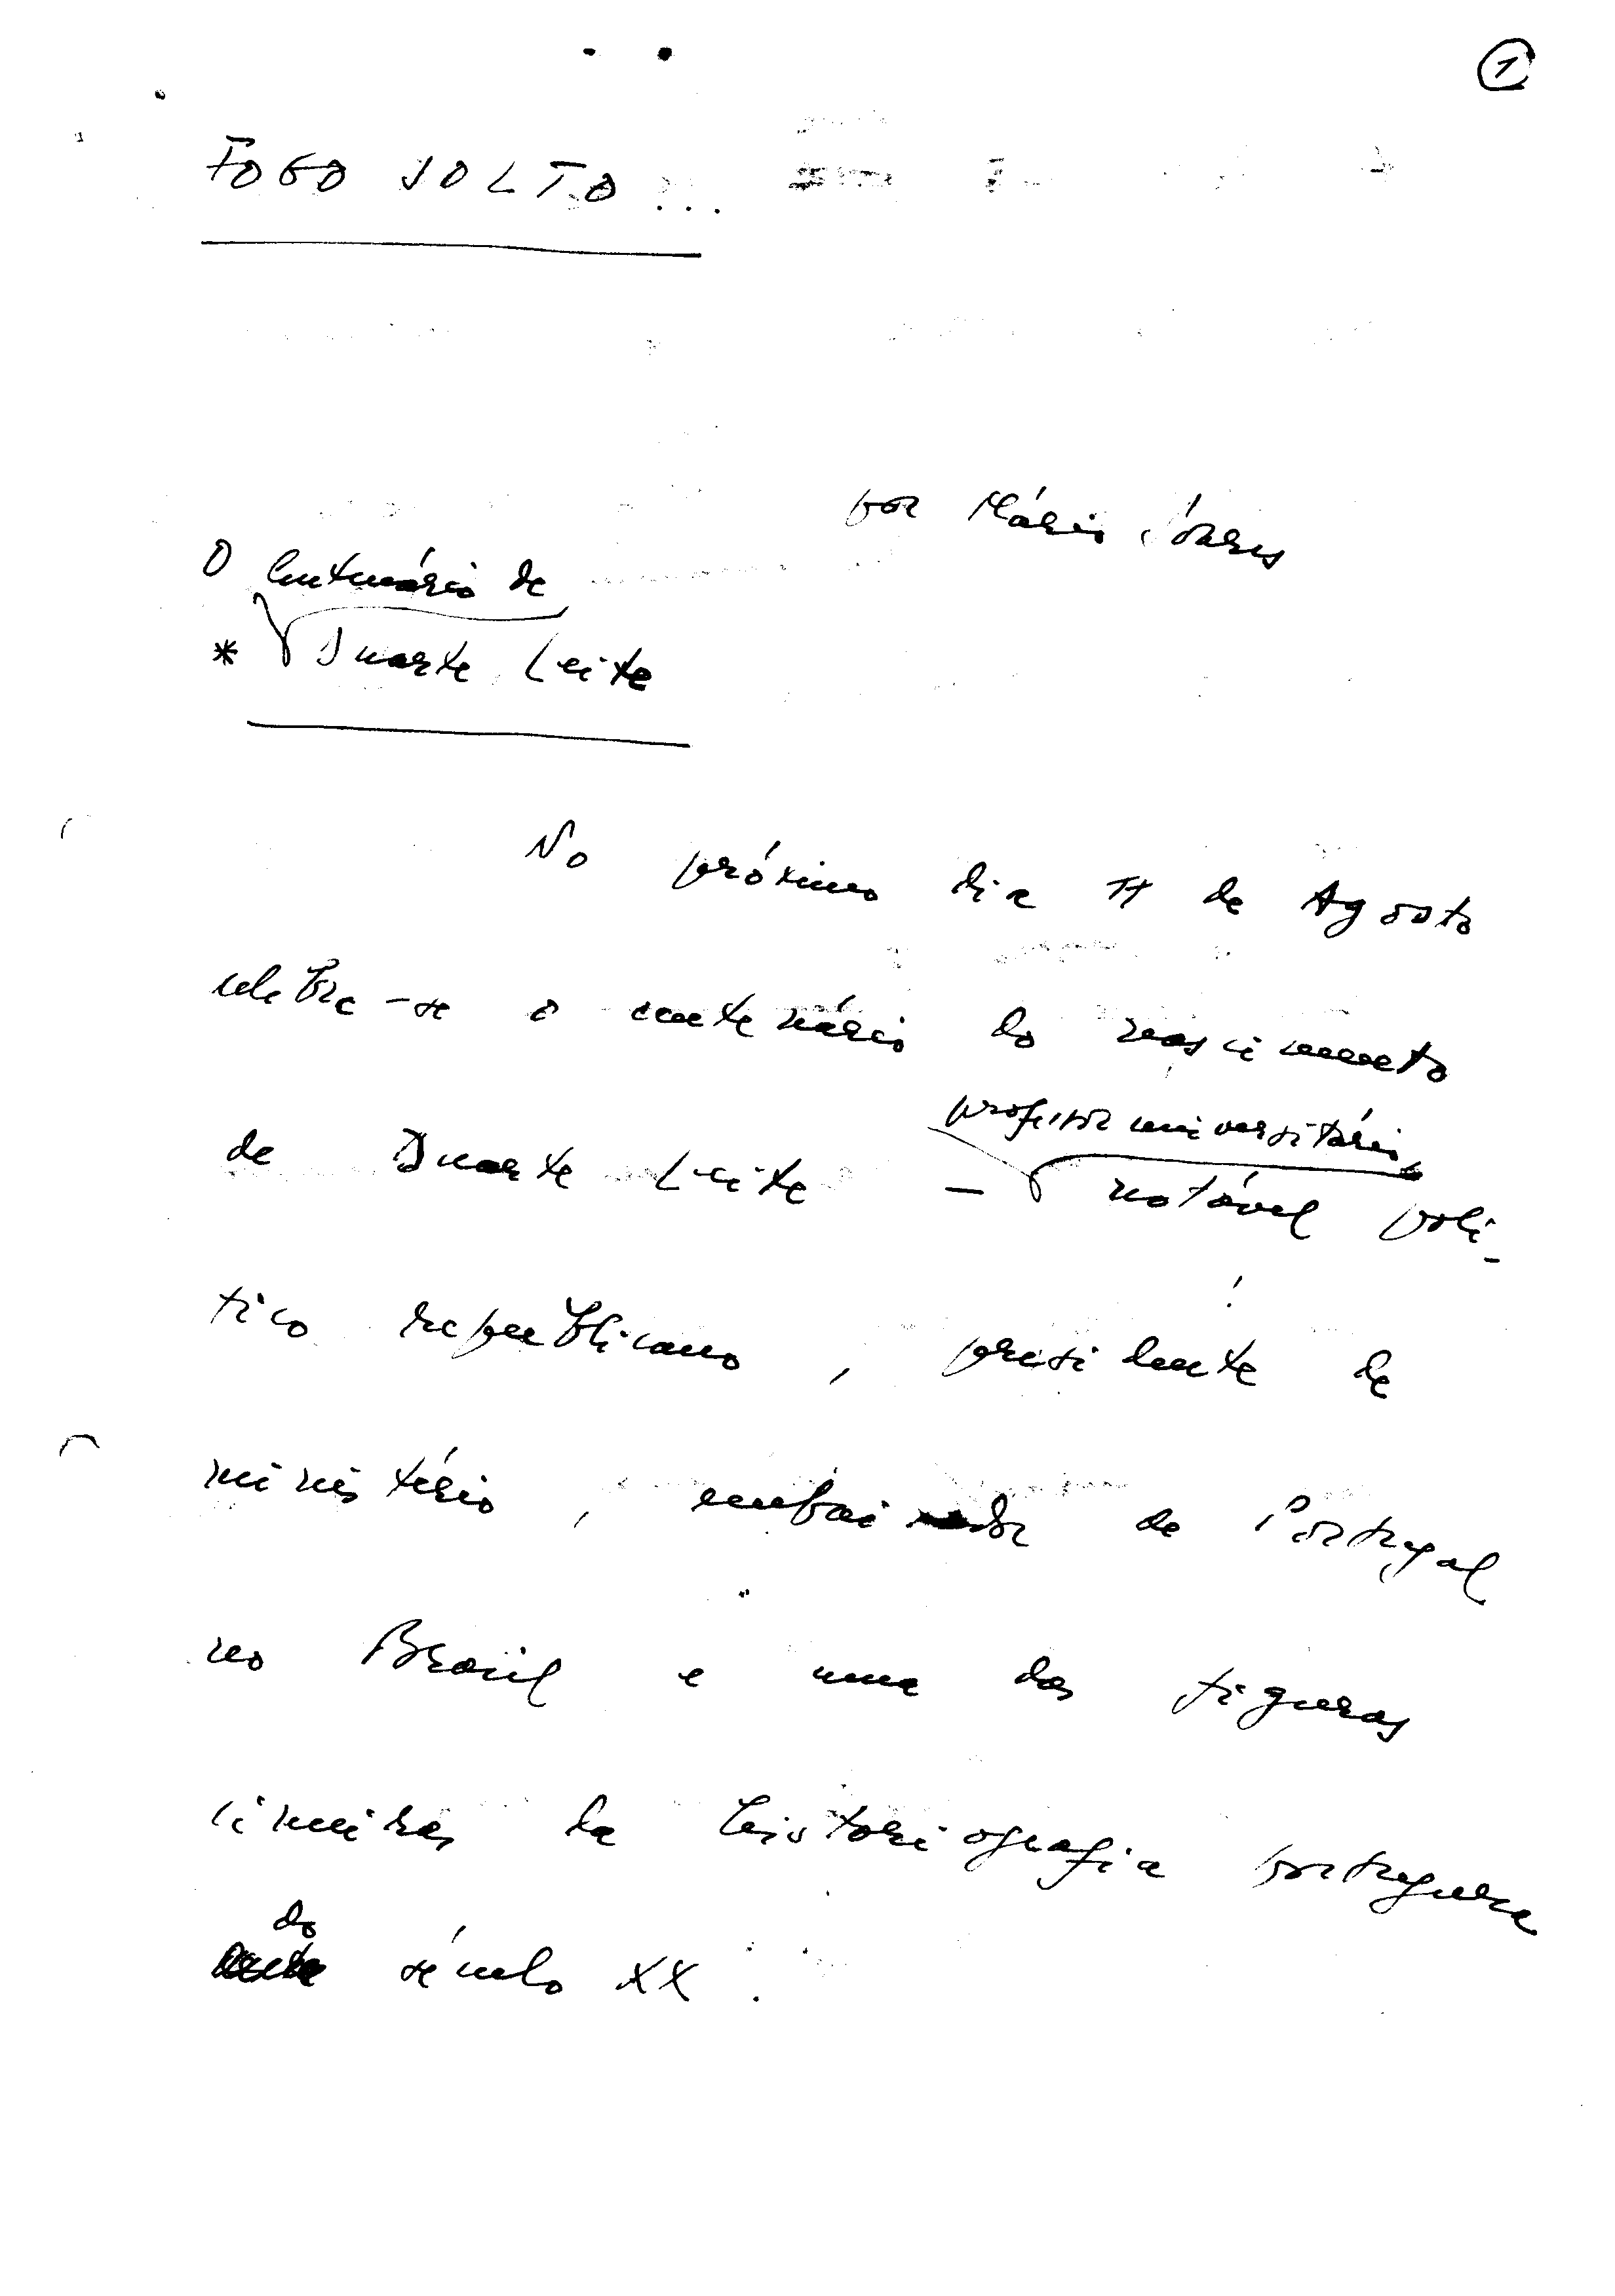 1
FOGO SOLTO...
por Mário Soares
O Centenário de
* Duarte Leite
No próximo dia 11 de Agosto
celebra-se o centenário do nascimento
professor universitário,
de Duarte Leite – notável polí-
tico republicano, presidente de
ministério, embaixador de Portugal
no Brasil e uma das figuras
cimeiras da historiografia portuguesa
do
século XX.